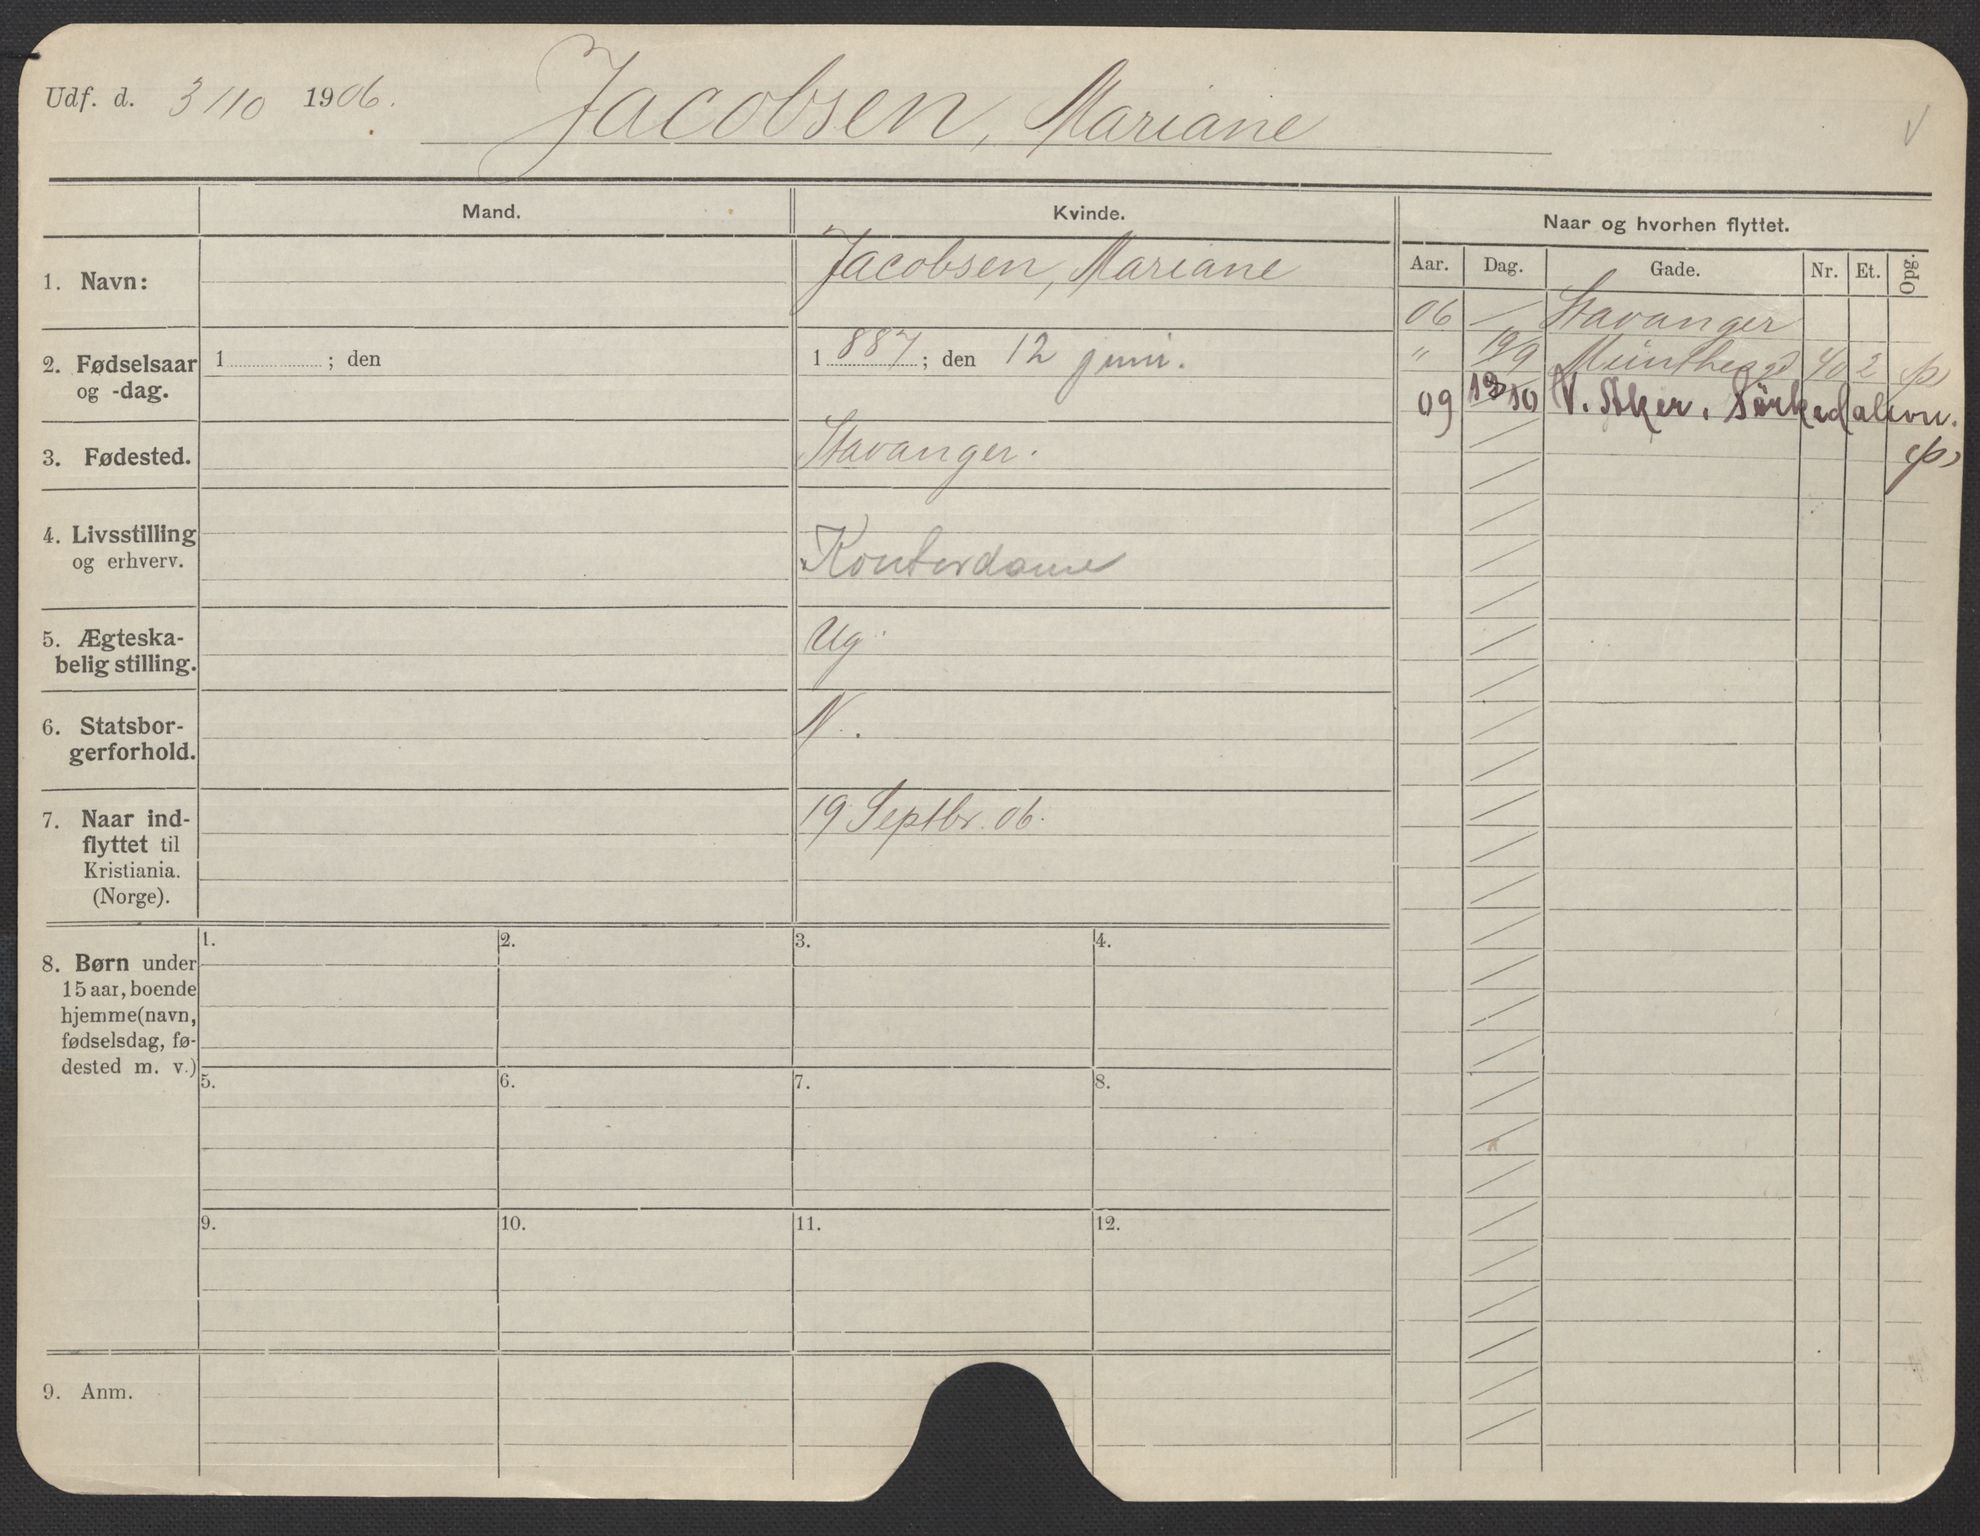 Udf. d. 3/10 1906. Jacobsen, Mariane
Mand.
Kvinde.
Naar og hvorhen flyttet.
Aar. Dag. Gade. Nr. Et. Opg.
1. Navn: Jacobsen, Mariane
06 Stavanger
2. Fødselsaar og -dag.
1 ; den
1887; den 12 juni.
" 19/9 Munthesgd 40 2
09 12/10 V. Aker. Sørkedalivn.
3. Fødested. Stavanger.
4. Livsstilling og erhverv.
Konterdame
5. Ægteska-
belig stilling.
Ug.
6. Statsbor-
gerforhold.
N.
7. Naar ind-
flyttet til
Kristiania.
(Norge).
19 Septbr. 06.
8. Børn under
15 aar, boende
hjemme (navn,
fødselsdag, fø-
dested m. v.)
1. 2. 3. 4.
5. 6. 7. 8.
9. 10. 11. 12.
9. Anm.